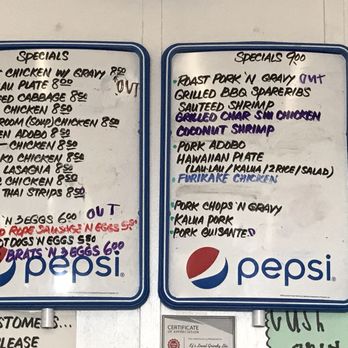 SPECIALS
CHICKEN W/ GRAVY 8.50
PLATE 8.00 OUT
CABBAGE 8.00
CHICKEN 8.00
(SOUP) CHICKEN 8.00
ADOBO 8.50
CHICKEN 8.50
CHICKEN 8.50
LASAGNA 8.50
CHICKEN 8.50
THAI STRIPS 8.50
'N 3 EGGS 6.00 OUT
ROPE SAUSAGE 'N EGGS 5.50
HOT DOGS 'N EGGS 5.50
BRATS 'N 3 EGGS 6.00
pepsi
SPECIALS 9.00
ROAST PORK 'N GRAVY OUT
GRILLED BBQ SPARERIBS
SAUTEED SHRIMP
GRILLED CHAR SIU CHICKEN
COCONUT SHRIMP
PORK ADOBO
HAWAIIAN PLATE
(LAU-LAU/KALUA/2 RICE/SALAD)
FURIKAKE CHICKEN
PORK CHOPS 'N GRAVY
KALUA PORK
PORK GUISANTES
pepsi
CERTIFICATE
OF APPRECIATION
PLEASE